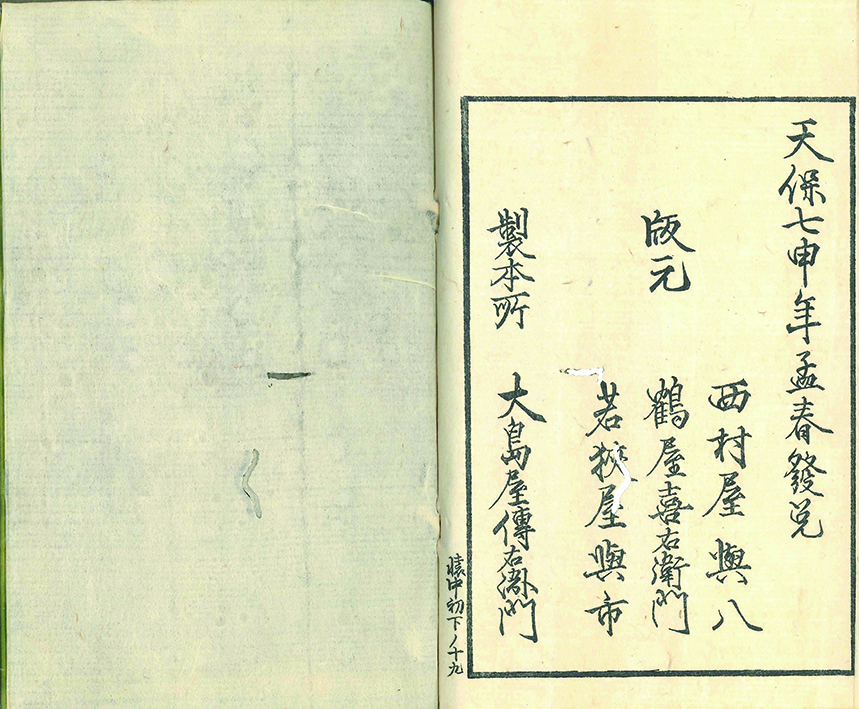 天保七申年孟春發兌
版元
西村屋與八
鶴屋喜右衛門
若狹屋與市
製本所
大島屋傳右衛門
懐中初下ノ十九